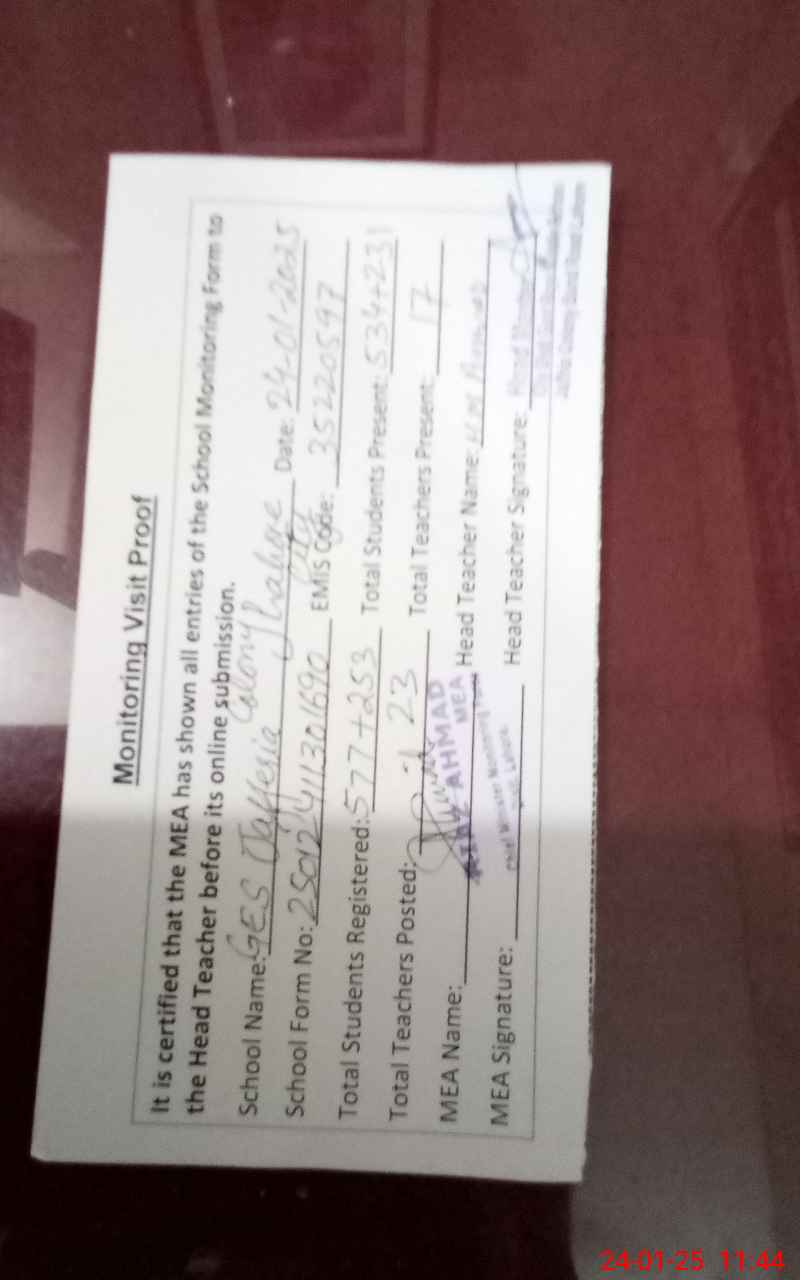 Monitoring Visit Proof
It is certified that the MEA has shown all entries of the School Monitoring Form to
the Head Teacher before its online submission.
School Name: GES Jafferia Colony Lahore City Date: 24-01-2025
School Form No: 25012411301690 EMIS Code: 35220597
Total Students Registered: 577+253 Total Students Present: 534+231
Total Teachers Posted: 23 Total Teachers Present: 17
MEA Name: AHMAD Head Teacher Name:
MEA
Chief Minister Monitoring Force
Lahore
MEA Signature: Head Teacher Signature:
24-01-25 11:44